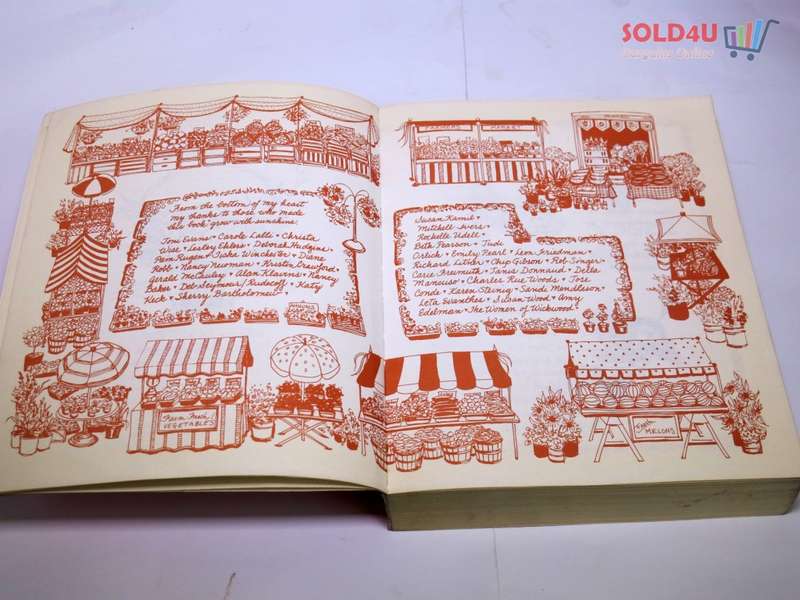 SOLD4U
Bargains Online
From the bottom of my heart
my thanks to those who made
this book grow with sunshine.
Toni Evans • Carole Lalli • Christa
Wise • Lesley Ehlers • Deborah Hudgins
Pam Rugen • Tisha Winchester • Diane
Robb • Nancy Newman • Kristen Crawford
Gerald McCauley • Alan Klavins • Nancy
Baker • Dot Seymour • Rudecoff • Katy
Keck • Sherry Bartholomew
Farm Fresh
VEGETABLES
FARMERS MARKET
Susan Kamil •
Mitchell Ivers •
Rochelle Udell •
Beth Pearson • Judi
Orlick • Emily Pearl • Leon Friedman
Richard Lither • Chip Gibson • Rob Singer
Carie Freimuth • Tania Donnaud • Della
Mancuso • Charles Rue Woods • Jose
Conde • Karen Steinig • Sandi Mendelson
Leta Evanthes • Susan Wood • Amy
Edelman • The Women of Wickwood!
Fresh
MELONS